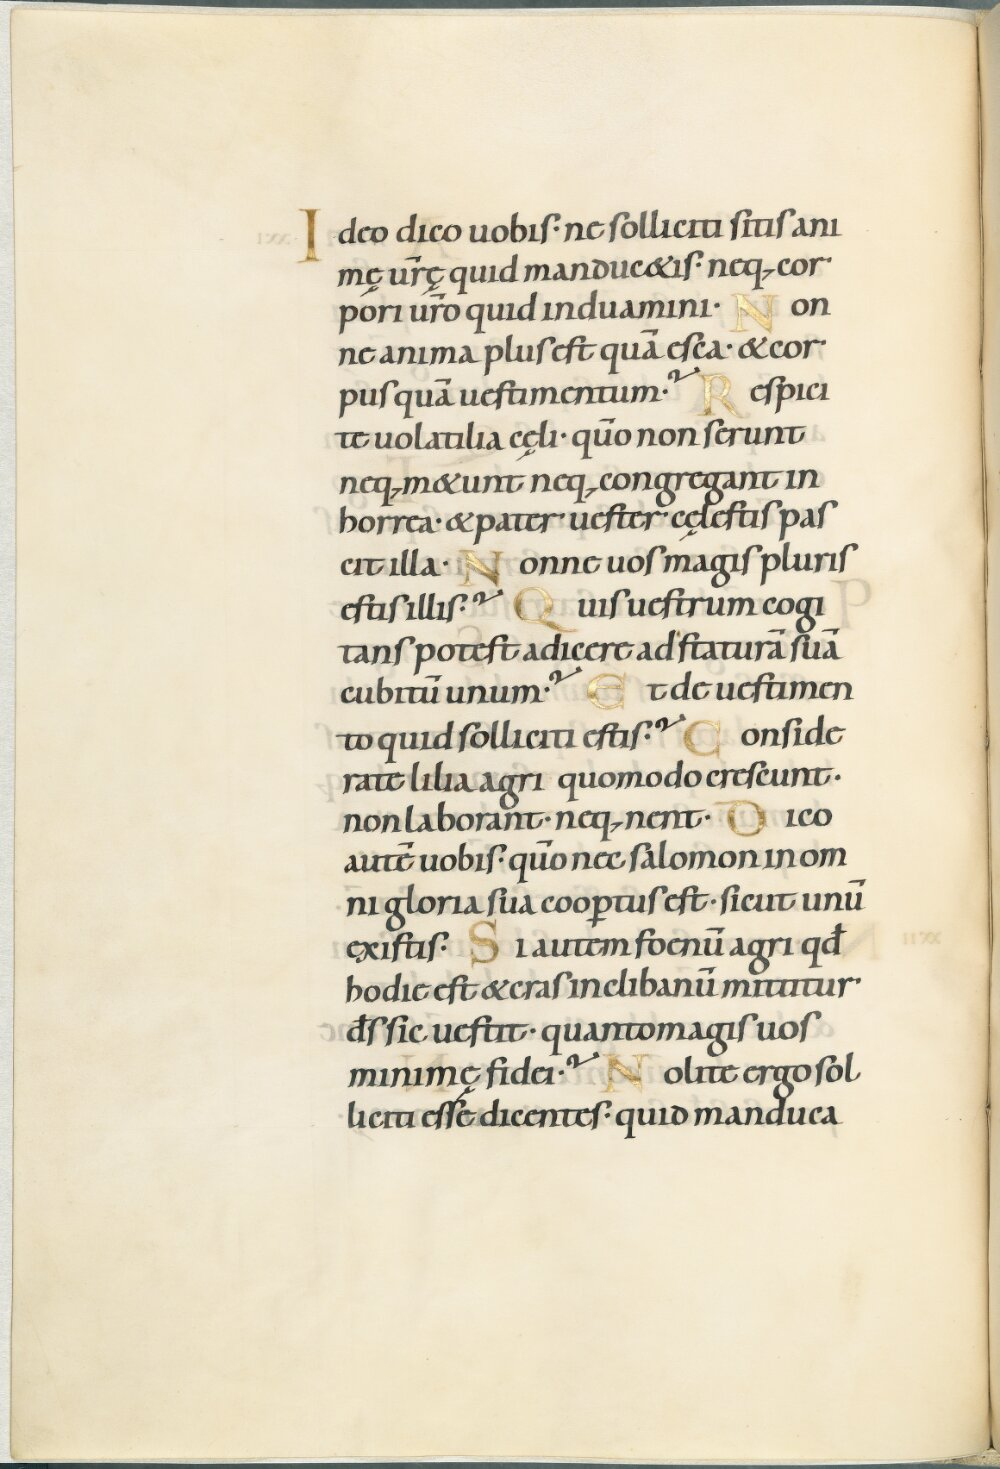 Ideo dico uobis· ne solliciti sitis ani
mę ur̄ę quid manduc&is· neq; cor
pori ur̄o quid induamini· Non
ne anima plus est quā esca· & cor
pus quā uestimentum·? Respici
te uolatilia cęli· qūo non serunt
neq; m&unt neq; congregant in
horrea· & pater uester cęlestis pas
cit illa· Nonne uos magis pluris
estis illis·? Quis uestrum cogi
tans potest adicere ad staturā suā
cubitū unum·? Et de uestimen
to quid solliciti estis·? Conside
rate lilia agri quomodo crescunt·
non laborant· neq; nent· Dico
autē uobis· qūo nec salomon in om
ni gloria sua coop̄tus est· sicut unū
ex istis· Si autem foenū agri qđ
hodie est & cras in clibanū mittitur
d̄s sic uestit· quanto magis uos
minimę fidei·? Nolite ergo sol
liciti ess̄e dicentes· quid manduca